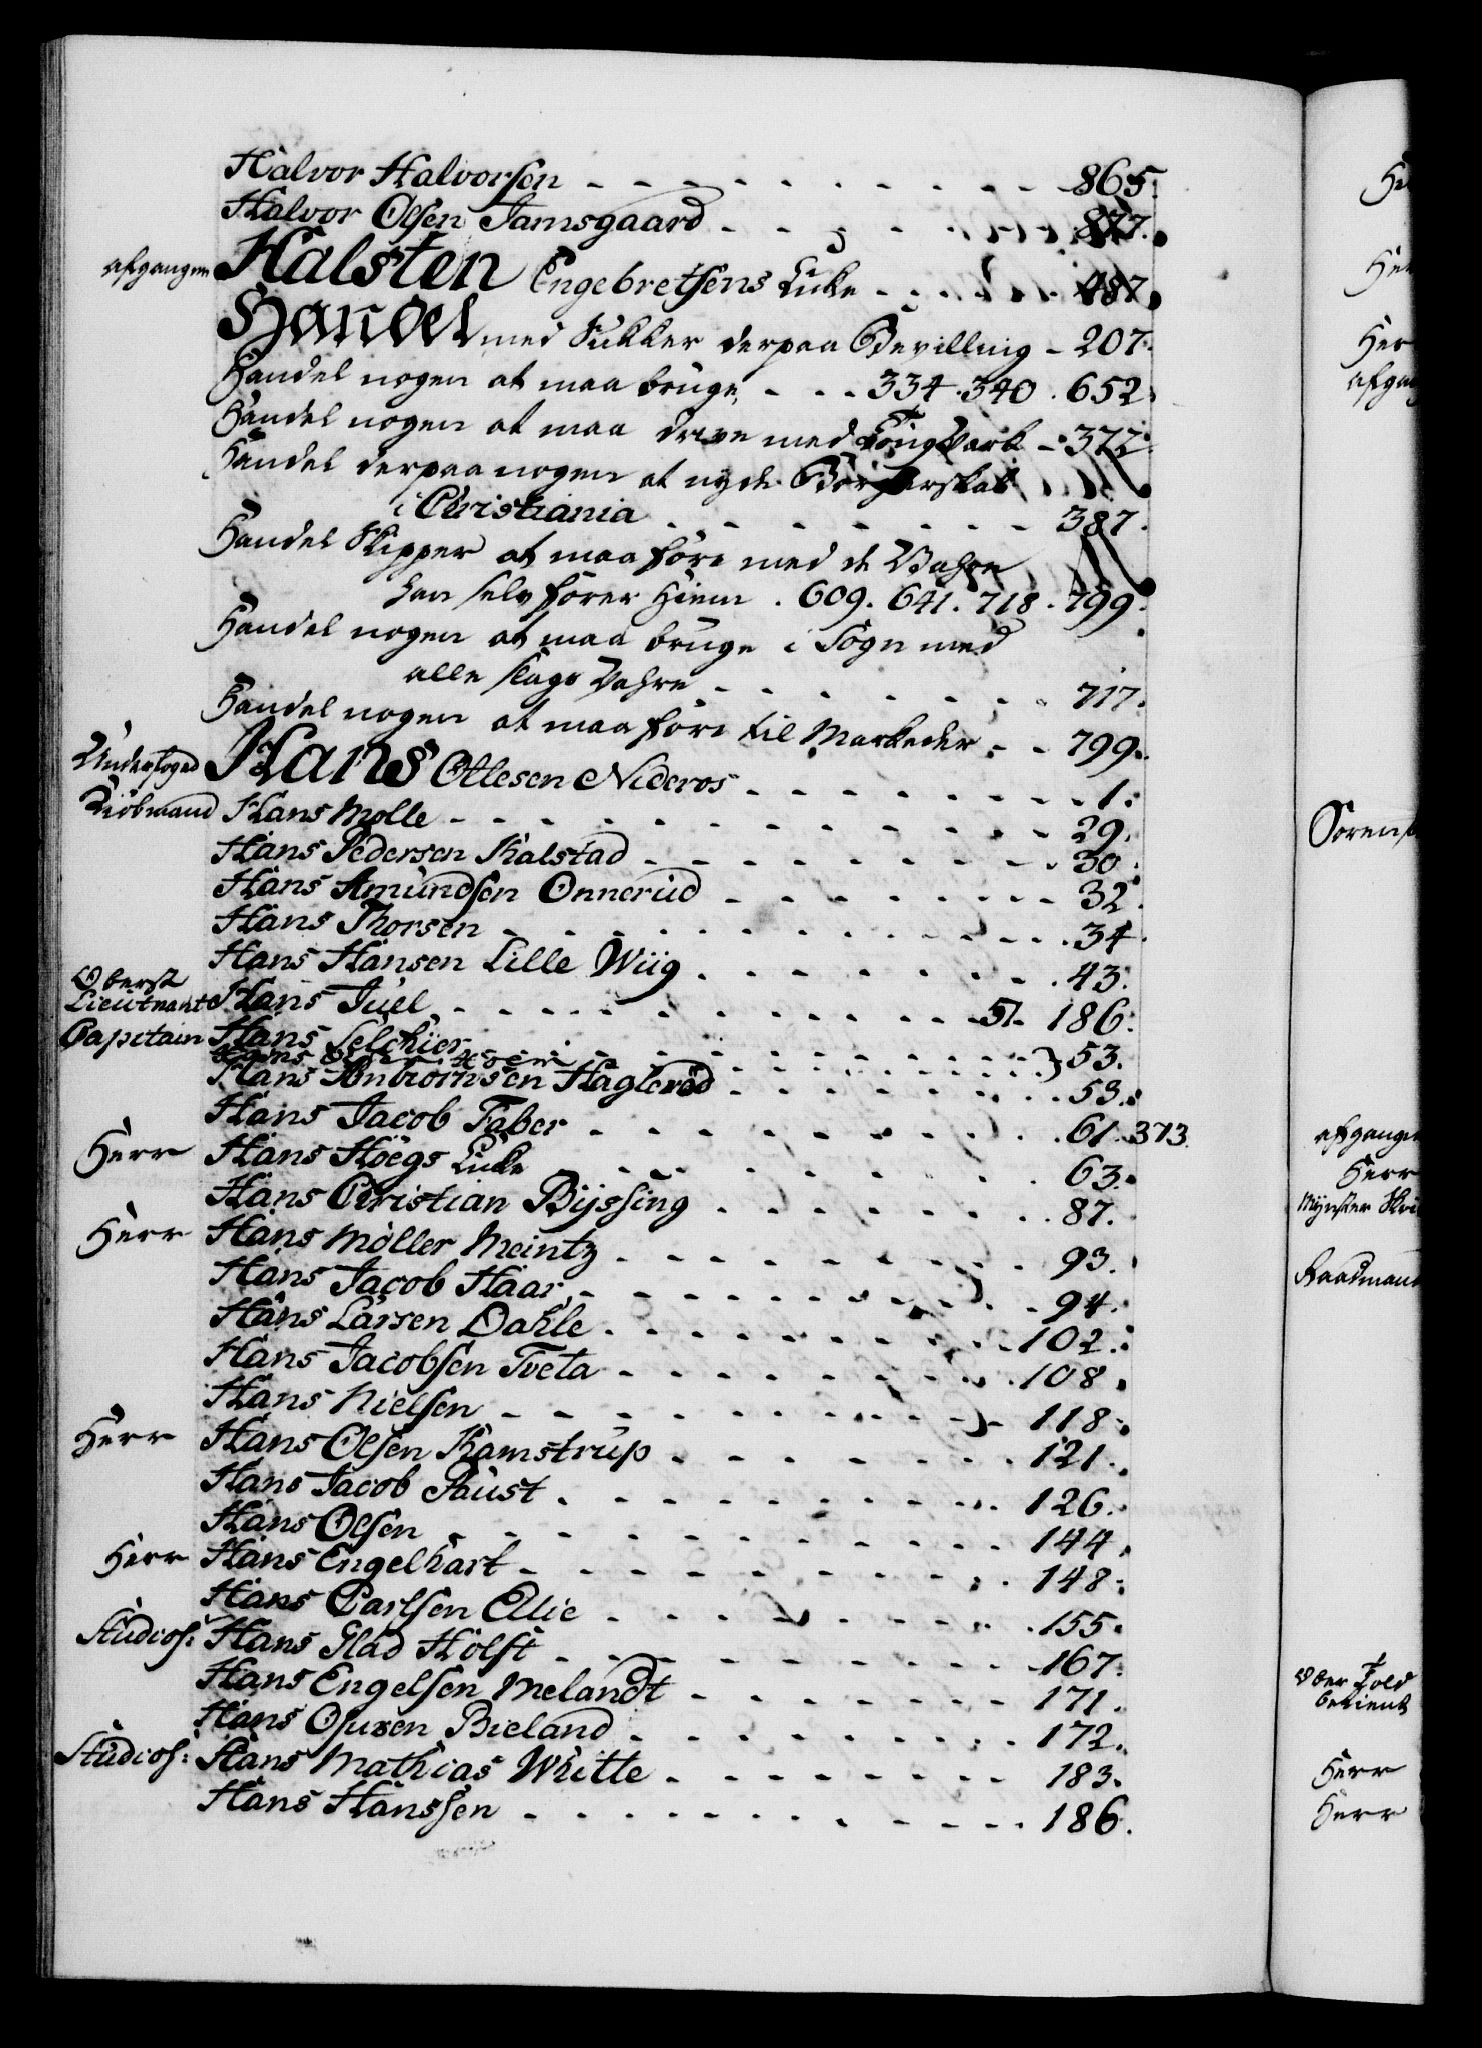 Halvor Halvorsen - - - - - - - - - - - 865.
Halvor Olsen Jamsgaard - - - - - - - 877.
afgangen Halsten Engebretsens Enke - - - - - 487.
Handel med Sukker derpaa Bevilling - 207.
Handel nogen at maa bruge, - - - 334. 340. 652.
Handel nogen at maa drive med - 372.
Handel derpaa nogen at nyde Borgerskab
i Christiania - - - - - - - - - 387.
Handel Skipper at maa føre med de Vahre
han selv fører Hiem . 609. 641. 718. 799.
Handel nogen at maa bruge i Sogn med
alle slags Vahre - - - - - - - - 717.
Handel nogen at maa føre til Markeder - - 799.
Underfoged Hans Ottesen Nideros - - - - - - - - - 1.
Kiøbmand Hans Molle - - - - - - - - - - - - - 29.
Hans Pedersen Kalstad - - - - - - - - - - 30.
Hans Amundsen Onnerud - - - - - - - - - 32.
Hans Thorsen - - - - - - - - - - - - - 34.
Hans Hansen Lille Wiig - - - - - - - - 43.
Oberst
Lieutnant Hans Juel - - - - - - - - - - - - 51. 186.
Capitain Hans Selchier - - - - - - - - - - } 53.
Hans
Hans Ambrorhsen Haglerød - - - - - - - - 53.
Hans Jacob Faber - - - - - - - - - - 61. 373.
Herr Hans Høegs Enke - - - - - - - - - 63.
Hans Christian Byssing - - - - - - - 87.
Herr Hans Møller Meintz - - - - - - - - - 93.
Hans Jacob Haar - - - - - - - - - - - 94.
Hans Larsen Dahle - - - - - - - - - - 102.
Hans Jacobsen Tveta - - - - - - - - - 108.
Hans Nielsen - - - - - - - - - - - - 118.
Herr Hans Olsen Kamstrup - - - - - - - - 121.
Hans Jacob Faust - - - - - - - - - - 126.
Hans Olsen - - - - - - - - - - - - 144.
Herr Hans Engelhart - - - - - - - - - - 148.
Hans Carlsen Elie - - - - - - - - - 155.
Studios: Hans Glad Holst - - - - - - - - - - 167.
Hans Engelsen Melandt - - - - - - - - 171.
Hans Osuxen Bieland - - - - - - - - 172.
Studios: Hans Mathias Whitte - - - - - - - - 183.
Hans Hanssen - - - - - - - - - - - 186.
Her
afgang
Sorens
afgangen
Herr
Mynster Skri
Raadmand
Over Told
betient
Herr
Herr